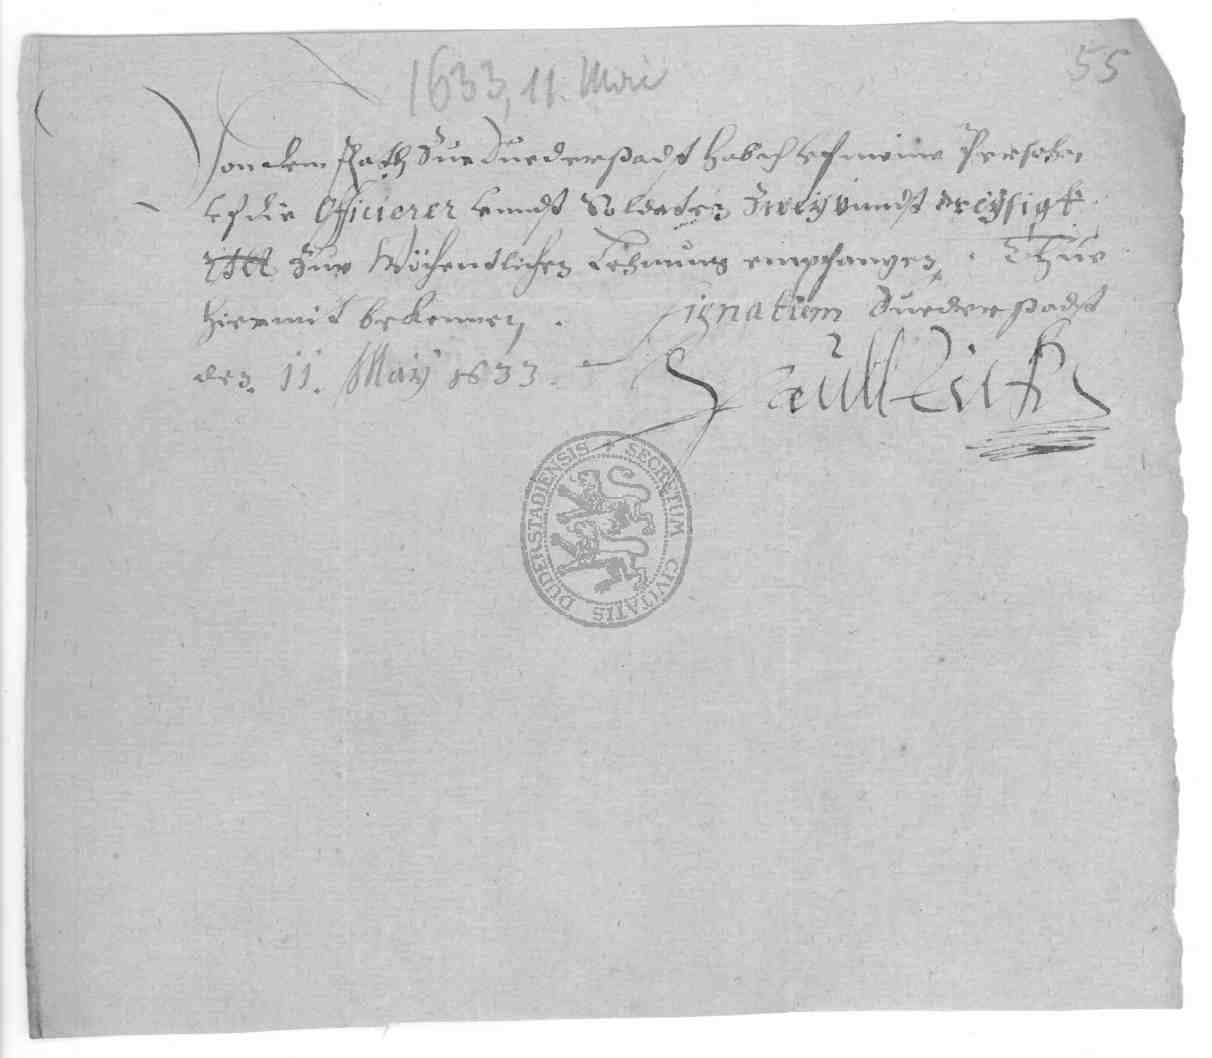 1633, 11. Mai
55
Von dem Rath Zue Duederstadt hab Ich uf meine Persohn,
uf die Officierer unndt Soldaten Zweÿ unndt dreÿsigk
Zur Wöchentlichen Lehnung empfangen. Thue
hiermit bekennen. Signatum Duederstadt
den 11. Maÿ 1633.
Paull
SECRETUM CIVITATIS DUDERSTADIENSIS